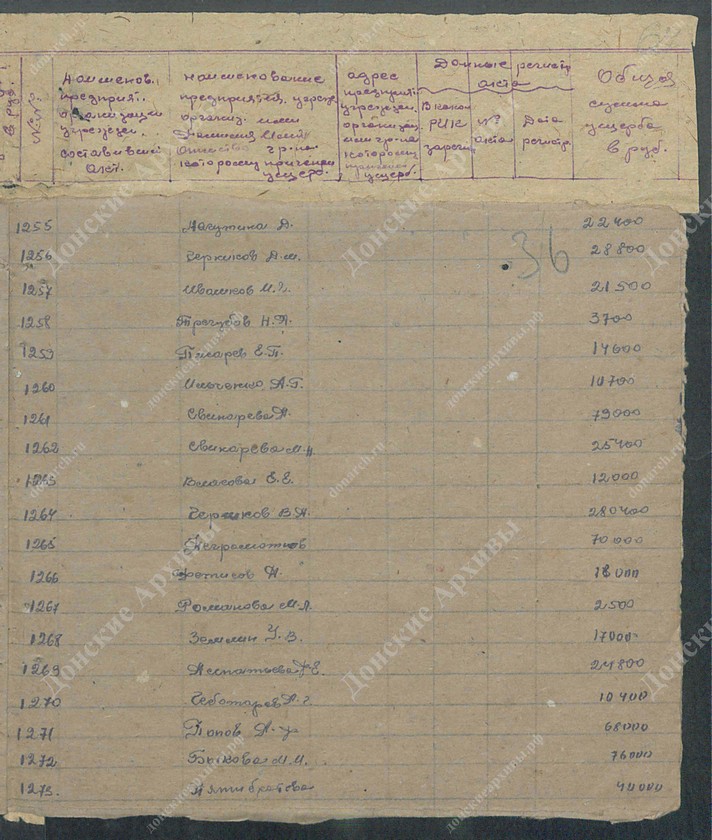 №№
Наименов. предприят. организации учрежден. составивший акт.
Наименование предприятия, учрежд. организ. или Фамилия Имя Отчество гр-на которому причинен ущерб.
адрес предприят. учрежден. организац. или гр-на которому причинен ущерб.
Данные регистр акта
В каком РИК зарегис
№ акта
Дата регистр.
Общая сумма ущерба в руб.
36
1255 Нагутина А. 22400
1256 Черников А.М. 28800
1257 Ивашков И.Г. 21500
1258 Трегубов Н.Я. 3700
1259 Писарев Е.П. 14600
1260 Ильченко А.Г. 10700
1261 Свинарева 79000
1262 Свинарева М.Н 25400
1263 Власова Е.Е. 12000
1264 Черников В.Я. 280400
1265 70000
1266 18000
1267 Романова М.Я. 2500
1268 Землин У.В. 17000
1269 24800
1270 Чеботарев 10400
1271 Попов 68000
1272 Быкова М.И. 76000
1273. Пятибратова 40000
Донские Архивы
donarch.ru
донскиеархивы.рф